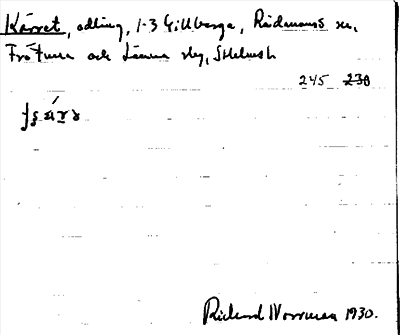 Kärret, odling, 1-3 Gillberga, Rådmansö sn,
Frötuna och Länna slg, Sthlms l.
245 230
Richard Norrman 1930.